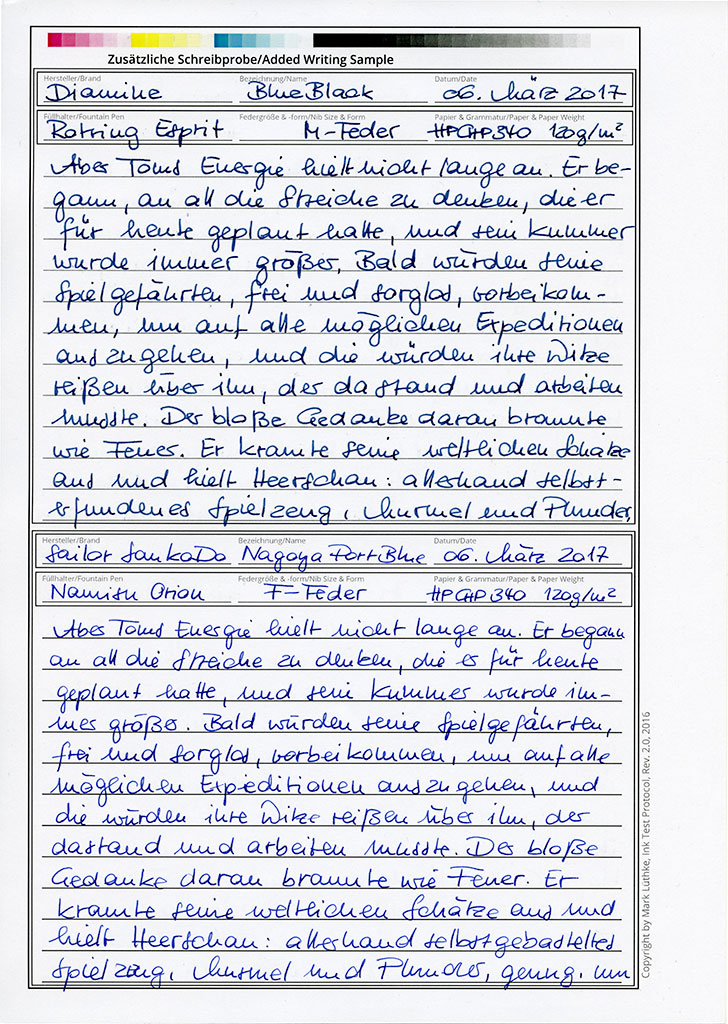 Zusätzliche Schreibprobe/Added Writing Sample
Hersteller/Brand Bezeichnung/Name Datum/Date
Diamine BlueBlack 06. März 2017
Füllhalter/Fountain Pen Federgröße & -form/Nib Size & Form Papier & Grammatur/Paper & Paper Weight
Rotring Esprit M-Feder HPCHP340 120g/m²
Aber Toms Energie hielt nicht lange an. Er be-
gann, an all die Streiche zu denken, die er
für heute geplant hatte, und sein Kummer
wurde immer größer. Bald würden seine
Spielgefährten, frei und sorglos, vorbeikom-
men, um auf alle möglichen Expeditionen
auszugehen, und die würden ihre Witze
reißen über ihn, der da stand und arbeiten
musste. Der bloße Gedanke daran brannte
wie Feuer. Er kramte seine weltlichen Schätze
aus und hielt Heerschau: allerhand selbst-
erfundenes Spielzeug, Murmel und Plunder,
Hersteller/Brand Bezeichnung/Name Datum/Date
Sailor SankoDo Nagoya PortBlue 06. März 2017
Füllhalter/Fountain Pen Federgröße & -form/Nib Size & Form Papier & Grammatur/Paper & Paper Weight
Namisu Orion F-Feder HPCHP340 120g/m²
Aber Toms Energie hielt nicht lange an. Er begann
an all die Streiche zu denken, die er für heute
geplant hatte, und sein Kummer wurde im-
mer größer. Bald würden seine Spielgefährten,
frei und sorglos, vorbeikommen, um auf alle
möglichen Expeditionen auszugehen, und
die würden ihre Witze reißen über ihn, der
dastand und arbeiten musste. Der bloße
Gedanke daran brannte wie Feuer. Er
kramte seine weltlichen Schätze aus und
hielt Heerschau: allerhand selbstgebasteltes
Spielzeug, Murmel und Plunder, genug, um
Copyright by Mark Lüthke, Ink Test Protocol, Rev. 2.0, 2016